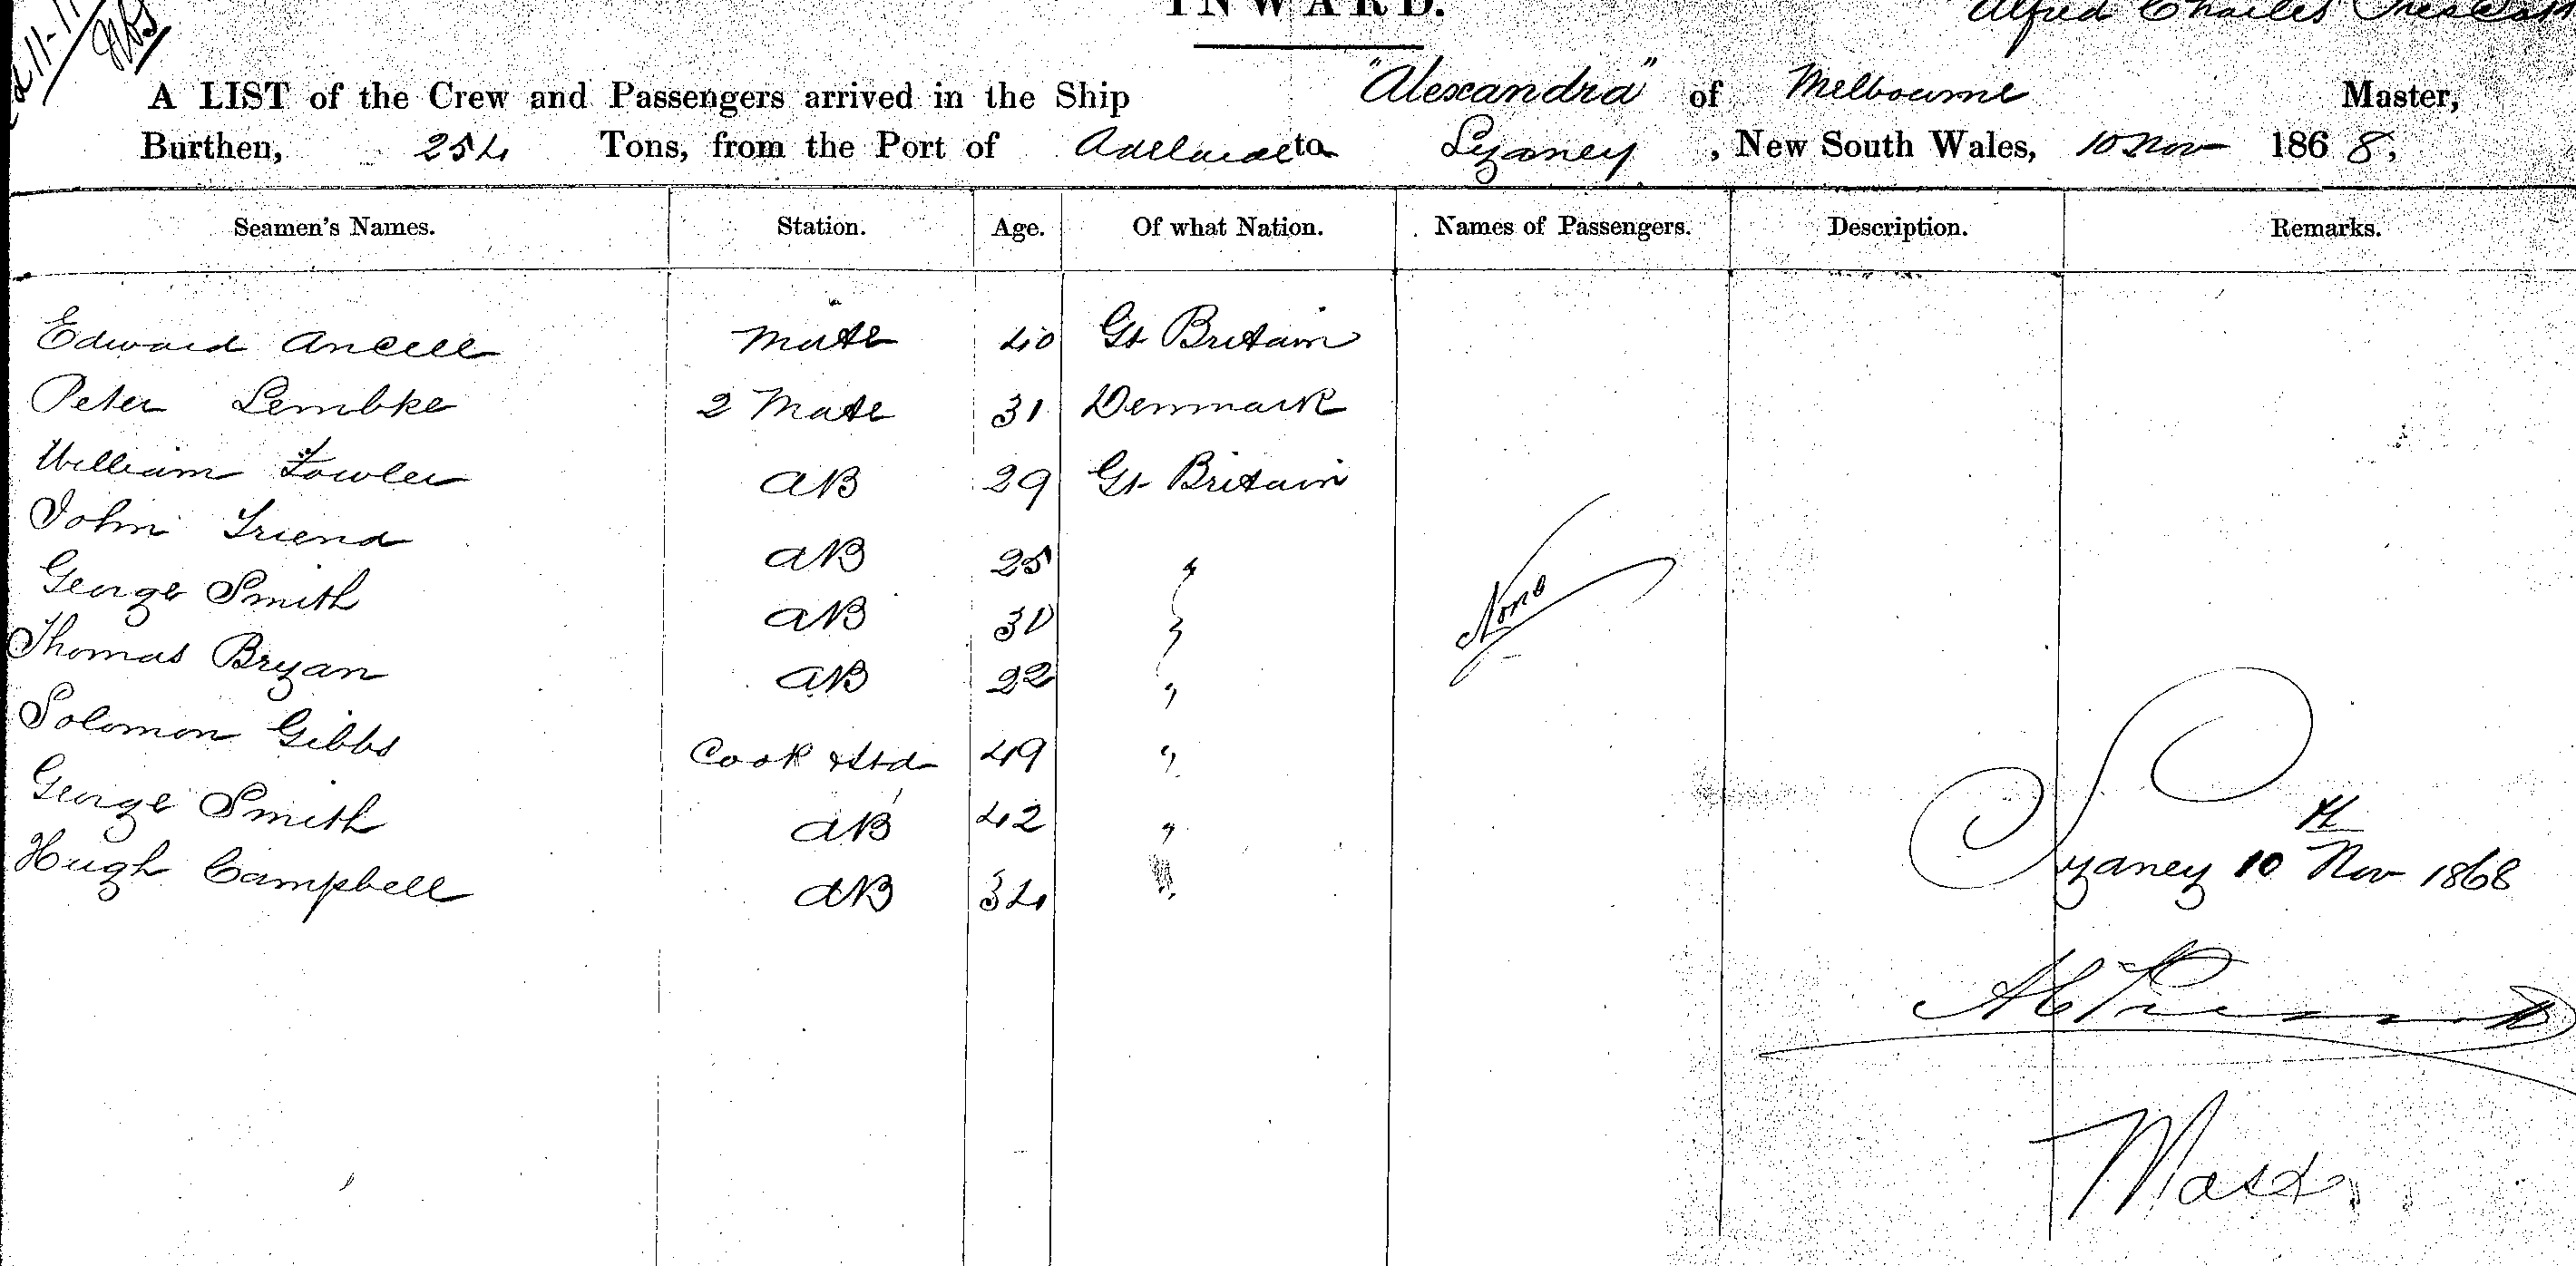 INWARD.
Alfred Charles
A LIST of the Crew and Passengers arrived in the Ship "Alexandra" of Melbourne Master,
Burthen, 254 Tons, from the Port of Adelaide to Sydney, New South Wales, 10 Nov 1868,
Seamen's Names. Station. Age. Of what Nation. Names of Passengers. Description. Remarks.
Edward Ancell Mate 40 Gt Britain
Peter Lembke 2 Mate 31 Denmark
William Fowler AB 29 Gt Britain
John Friend AB 25 "
George Smith AB 30 "
Thomas Bryan AB 22 "
Solomon Gibbs Cook & Std 49 "
George Smith AB 42 "
Hugh Campbell AB 34 "
None
Sydney 10th Nov 1868
Mast